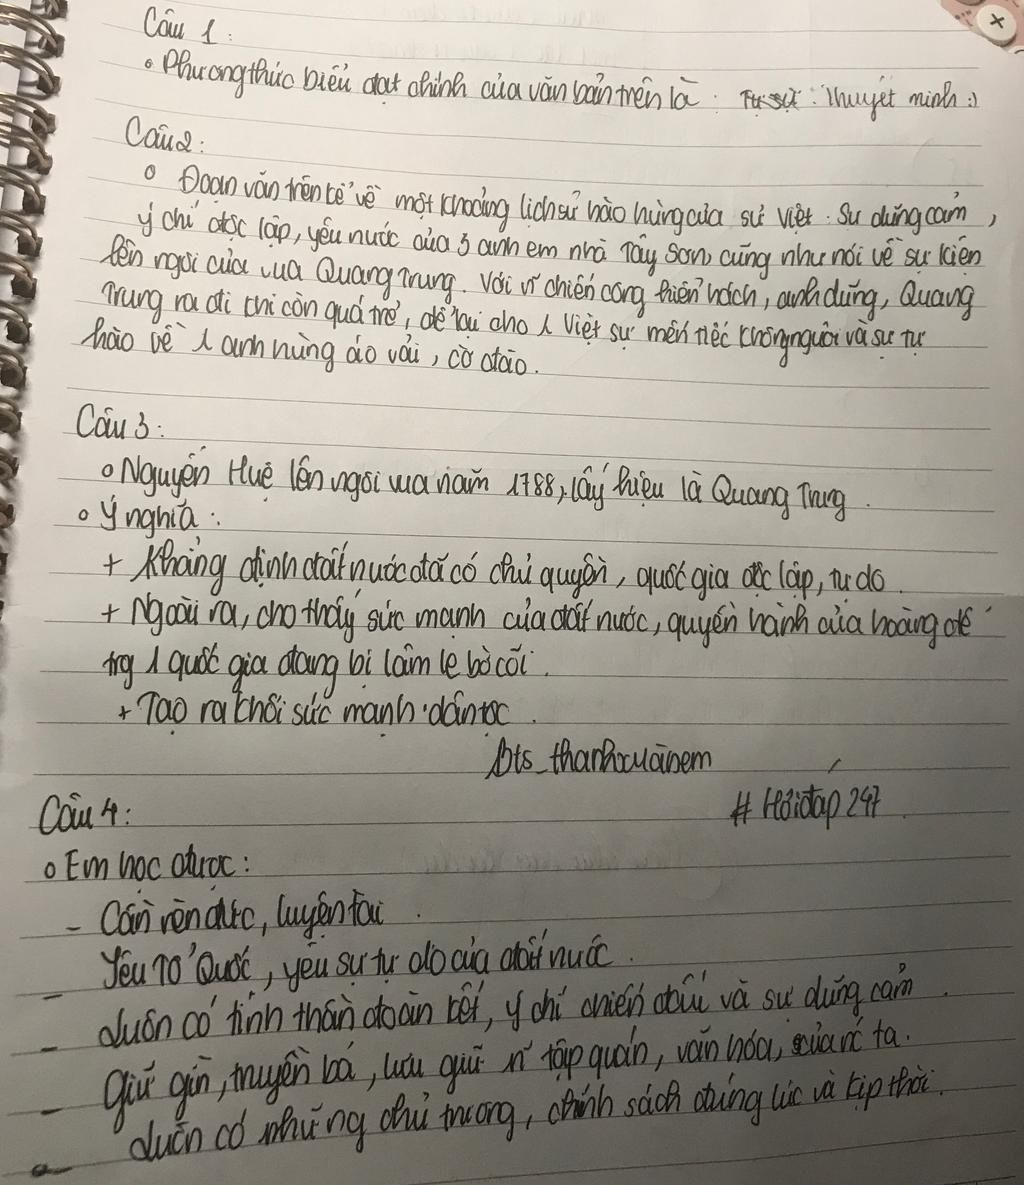 Câu 1:
o Phương thức biểu đạt chính của văn bản trên là : Tự sự : Thuyết minh :)
Câu 2:
o Đoạn văn trên kể về một khoảng lịch sử hào hùng của sử Việt. Sự dũng cảm,
ý chí độc lập, yêu nước của 3 anh em nhà Tây Sơn, cũng như nói về sự kiện
lên ngôi của vua Quang Trung. Với vĩ chiến công hiển hách, anh dũng, Quang
Trung ra đi khi còn quá trẻ, để lại cho l Việt sự mến tiếc không nguôi và sự tự
hào về 1 anh hùng áo vải, cờ đào.
Câu 3:
o Nguyễn Huệ lên ngôi vua năm 1788, lấy hiệu là Quang Trung.
o Ý nghĩa:
+ Khẳng định đất nước đã có chủ quyền, quốc gia độc lập, tự do.
+ Ngoài ra, cho thấy sức mạnh của đất nước, quyền hành của hoàng đế
trg 1 quốc gia đang bị lăm le bờ cõi.
+ Tạo ra khối sức mạnh dân tộc.
Bts_thanhxuânem
# Hỏiđáp 247
Câu 4:
o Em học được:
- Cần rèn đức, luyện tài.
- Yêu Tổ Quốc, yêu sự tự do của đất nước.
- Luôn có tinh thần đoàn kết, ý chí chiến đấu và sự dũng cảm.
- Giữ gìn, truyền bá, lưu giữ n~ tập quán, văn hóa, của nc ta.
- Luôn có những chủ trương, chính sách đúng lúc và kịp thời.